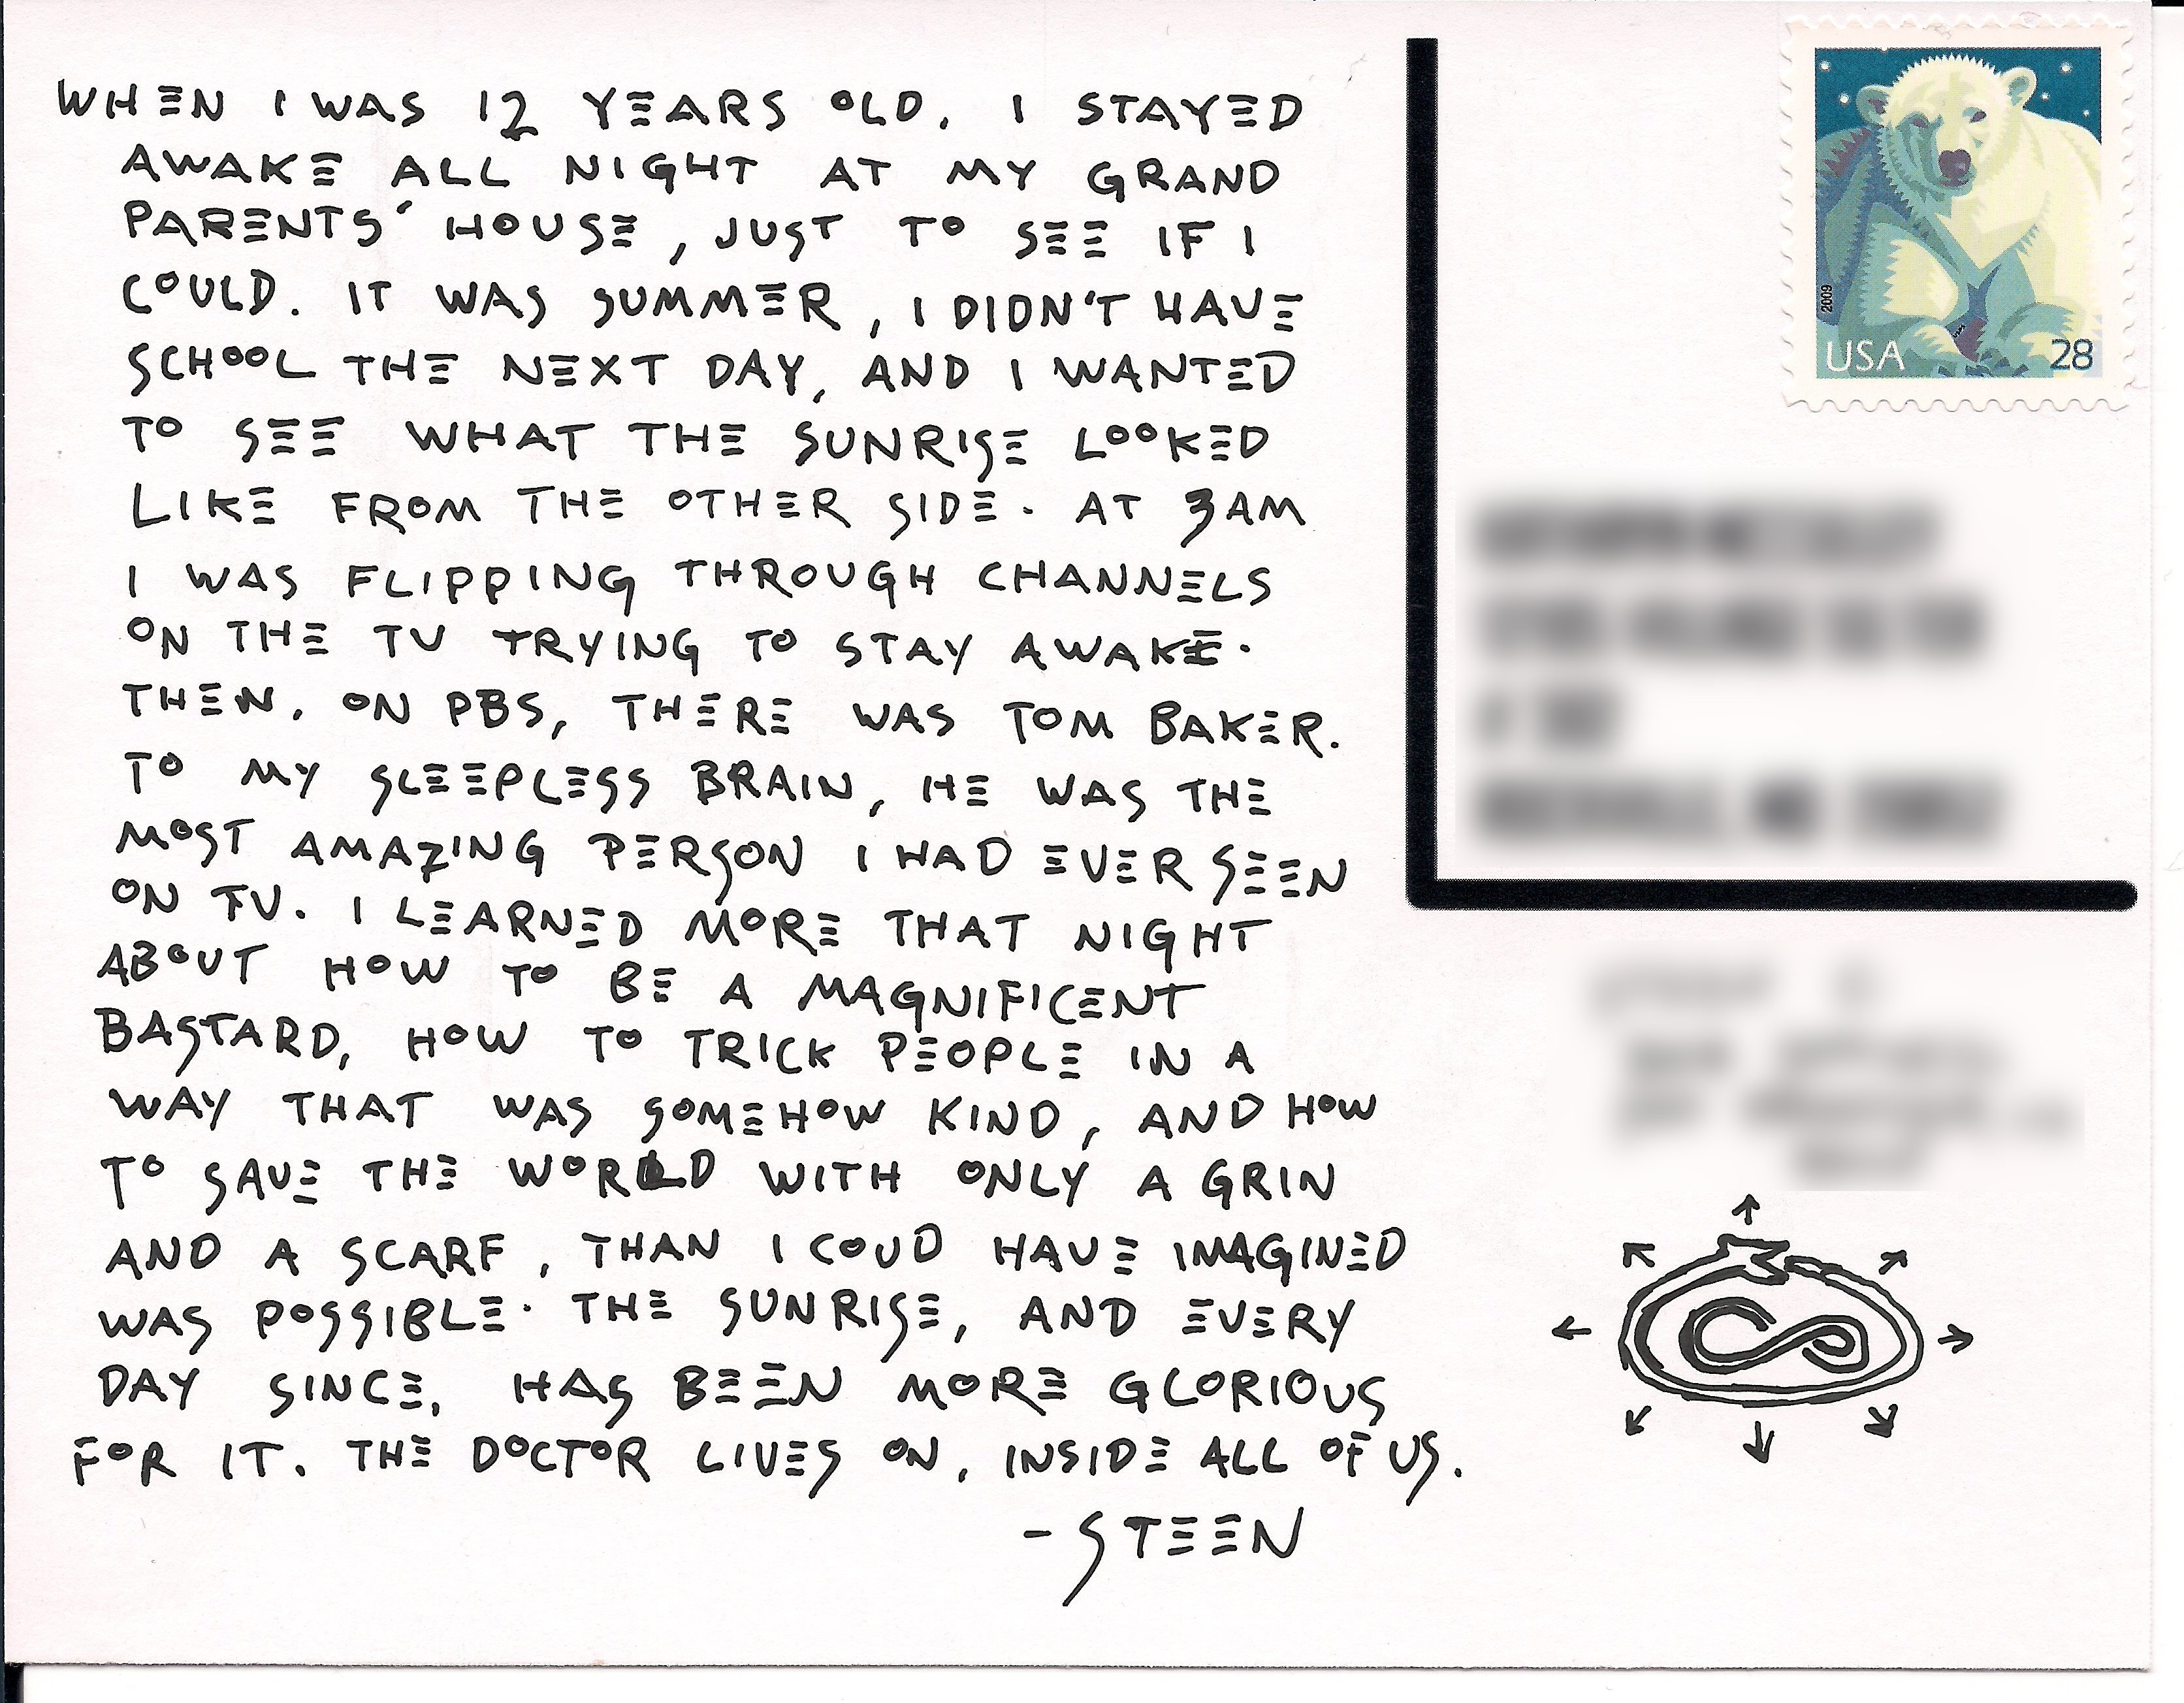 WHEN I WAS 12 YEARS OLD, I STAYED
AWAKE ALL NIGHT AT MY GRAND
PARENTS' HOUSE, JUST TO SEE IF I
COULD. IT WAS SUMMER, I DIDN'T HAVE
SCHOOL THE NEXT DAY, AND I WANTED
TO SEE WHAT THE SUNRISE LOOKED
LIKE FROM THE OTHER SIDE. AT 3AM
I WAS FLIPPING THROUGH CHANNELS
ON THE TV TRYING TO STAY AWAKE.
THEN, ON PBS, THERE WAS TOM BAKER.
TO MY SLEEPLESS BRAIN, HE WAS THE
MOST AMAZING PERSON I HAD EVER SEEN
ON TV. I LEARNED MORE THAT NIGHT
ABOUT HOW TO BE A MAGNIFICENT
BASTARD, HOW TO TRICK PEOPLE IN A
WAY THAT WAS SOMEHOW KIND, AND HOW
TO SAVE THE WORLD WITH ONLY A GRIN
AND A SCARF, THAN I COUD HAVE IMAGINED
WAS POSSIBLE. THE SUNRISE, AND EVERY
DAY SINCE, HAS BEEN MORE GLORIOUS
FOR IT. THE DOCTOR LIVES ON, INSIDE ALL OF US.
-STEEN
2009
USA 28